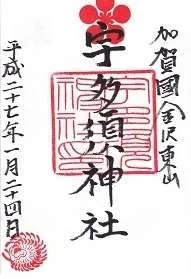 加賀國金沢東山
宇多須神社
平成二十七年一月二十四日